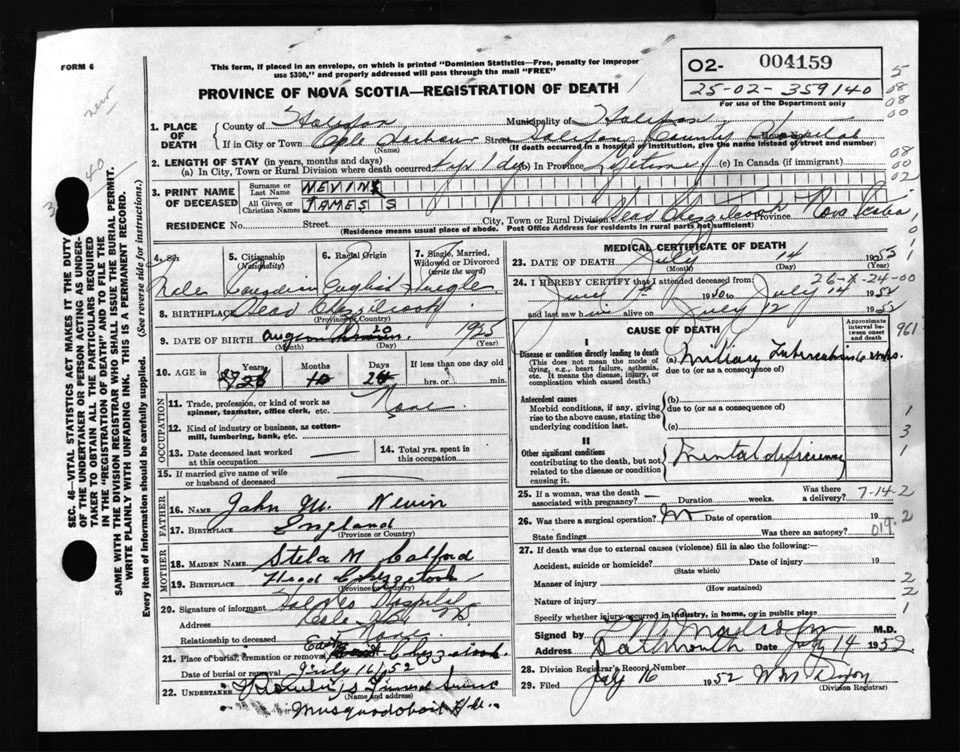 FORM 6
This form, if placed in an envelope, on which is printed "Dominion Statistics—Free, penalty for improper
use $300," and properly addressed will pass through the mail "FREE"
PROVINCE OF NOVA SCOTIA—REGISTRATION OF DEATH
02- 004159
25-02-359140
For use of the Department only
new
SEC. 46—VITAL STATISTICS ACT MAKES IT THE DUTY
OF THE UNDERTAKER OR PERSON ACTING AS UNDER-
TAKER TO OBTAIN ALL THE PARTICULARS REQUIRED
IN THE "REGISTRATION OF DEATH" AND TO FILE THE
SAME WITH THE DIVISION REGISTRAR WHO SHALL ISSUE THE BURIAL PERMIT.
WRITE PLAINLY WITH UNFADING INK. THIS IS A PERMANENT RECORD.
Every item of information should be carefully supplied. (See reverse side for instructions.)
1. PLACE OF DEATH
County of Halifax Municipality of Halifax
If in City or Town Cole Harbour Street Halifax County Hospital
(Name) (If death occurred in a hospital or institution, give the name instead of street and number)
2. LENGTH OF STAY (in years, months and days)
(a) In City, Town or Rural Division where death occurred (b) In Province Lifetime (c) In Canada (if immigrant)
3. PRINT NAME OF DECEASED
Surname or Last Name NEVINS
All Given or Christian Names JAMES S
RESIDENCE No. Street City, Town or Rural Division Head Chezzetcook Province Nova Scotia
(Residence means usual place of abode. Post Office Address for residents in rural parts not sufficient)
4. Sex
5. Citizenship (Nationality)
6. Racial Origin
7. Single, Married, Widowed or Divorced (write the word)
Male Canadian English Single
8. BIRTHPLACE Head Chezzetcook
(Province or Country)
9. DATE OF BIRTH August 20 1925
(Month) (Day) (Year)
10. AGE in Years Months Days If less than one day old
hrs. or min.
OCCUPATION
11. Trade, profession, or kind of work as
spinner, teamster, office clerk, etc. None
12. Kind of industry or business, as cotton-
mill, lumbering, bank, etc.
13. Date deceased last worked at this occupation —
14. Total yrs. spent in this occupation
15. If married give name of wife
or husband of deceased
FATHER
16. Name John M. Nevin
17. BIRTHPLACE England
(Province or Country)
MOTHER
18. MAIDEN NAME Stela M
19. BIRTHPLACE Head Chezzetcook
(Province or Country)
20. Signature of informant Hospital
Address Cole NS
Relationship to deceased None
21. Place of burial, cremation or removal East Chezzetcook
Date of burial or removal July 16/52
22. UNDERTAKER
(Name and address)
Musquodoboit Hbr.
MEDICAL CERTIFICATE OF DEATH
23. DATE OF DEATH July 14 19
(Month) (Day) (Year)
24. I HEREBY CERTIFY that I attended deceased from
26-X-24-00
June 1st 1950 to July 14 1952
and last saw him alive on July 12 1952
CAUSE OF DEATH
Approximate interval between onset and death
I
Disease or condition directly leading to death
(This does not mean the mode of dying, e.g., heart failure, asthenia, etc. It means the disease, injury, or complication which caused death.)
(a) Miliary Tuberculosis 6 wks.
due to (or as a consequence of)
Antecedent causes
Morbid conditions, if any, giving rise to the above cause, stating the underlying condition last.
(b)
due to (or as a consequence of)
(c)
II
Other significant conditions
contributing to the death, but not related to the disease or condition causing it.
Mental deficiency
25. If a woman, was the death associated with pregnancy? — Duration weeks. Was there a delivery?
7-14-2
26. Was there a surgical operation? No Date of operation 19
State findings Was there an autopsy?
019.2
27. If death was due to external causes (violence) fill in also the following:—
Accident, suicide or homicide? Date of injury 19
(State which)
Manner of injury
(How sustained)
Nature of injury
Specify whether injury occurred in industry, in home, or in public place
Signed by Malcolm M.D.
Address Dartmouth Date July 14 1952
28. Division Registrar's Record Number
29. Filed July 16 1952 W M Dixon
(Division Registrar)